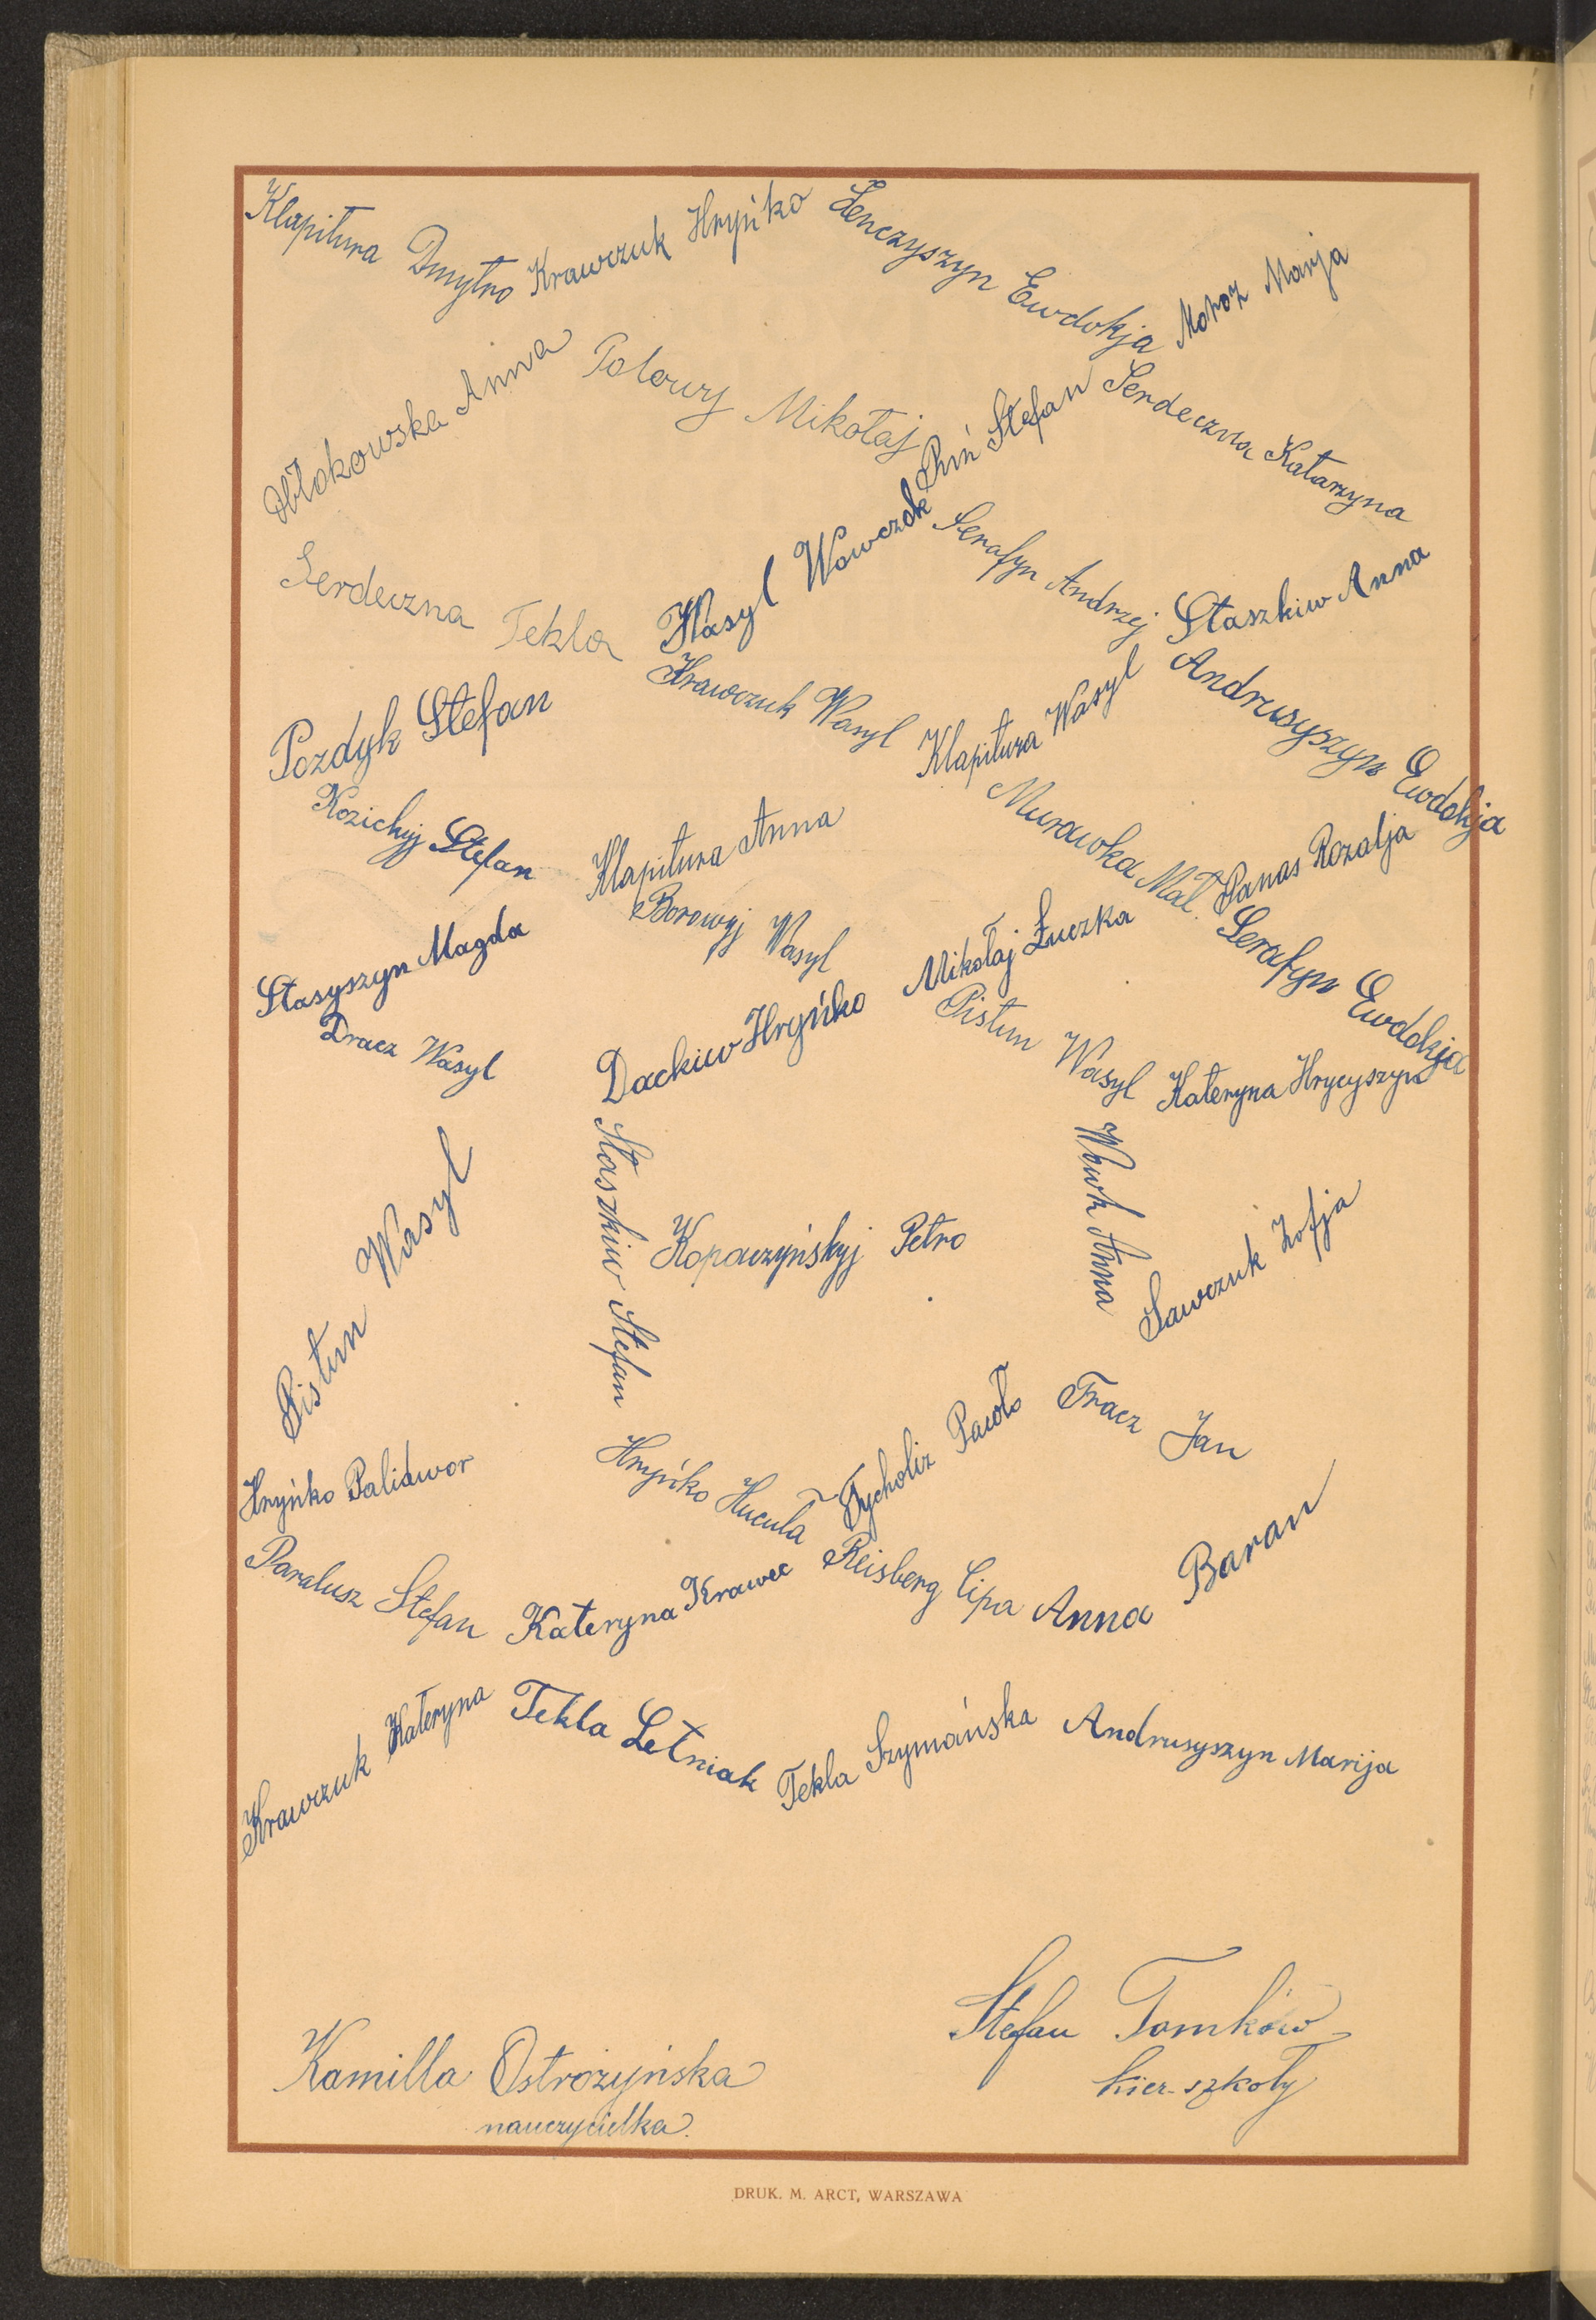 Klapitura Dmytro
Krawczuk Hryńko
Lenczyszyn Ewdokja
Moroz Marja
Anna
Polowy Mikołaj
Stefan
Serdeczna Katarzyna
Serdeczna Tekla
Wasyl Wowczok
Serafyn Andrzej
Staszkiw Anna
Pozdyk Stefan
Krawczuk Wasyl
Klapitura Wasyl
Andrusyszyn Ewdokja
Kozichyj Stefan
Klapitura Anna
Murawka Mał.
Panas Rozalja
Stasyszyn Magda
Borowyj Wasyl
Mikołaj Łuczka
Serafyn Ewdokja
Dracz Wasyl
Dackiw Hryńko
Pistun Wasyl
Kateryna Hrycyszyn
Pistun Wasyl
Staszkiw Stefan
Kopaczyńskyj Petro
Wowk Anna
Sawczuk Zofja
Hryńko Palidwor
Hryńko Hucuła
Tycholiz Pawło
Tracz Jan
Paralusz Stefan
Kateryna Krawec
Reisberg Cipa
Anna Baran
Krawczuk Kateryna
Tekla Letniak
Tekla Szymańska
Andrusyszyn Marija
Stefan Tomków
kier. szkoły
Kamilla Ostrożyńska
nauczycielka.
DRUK. M. ARCT, WARSZAWA